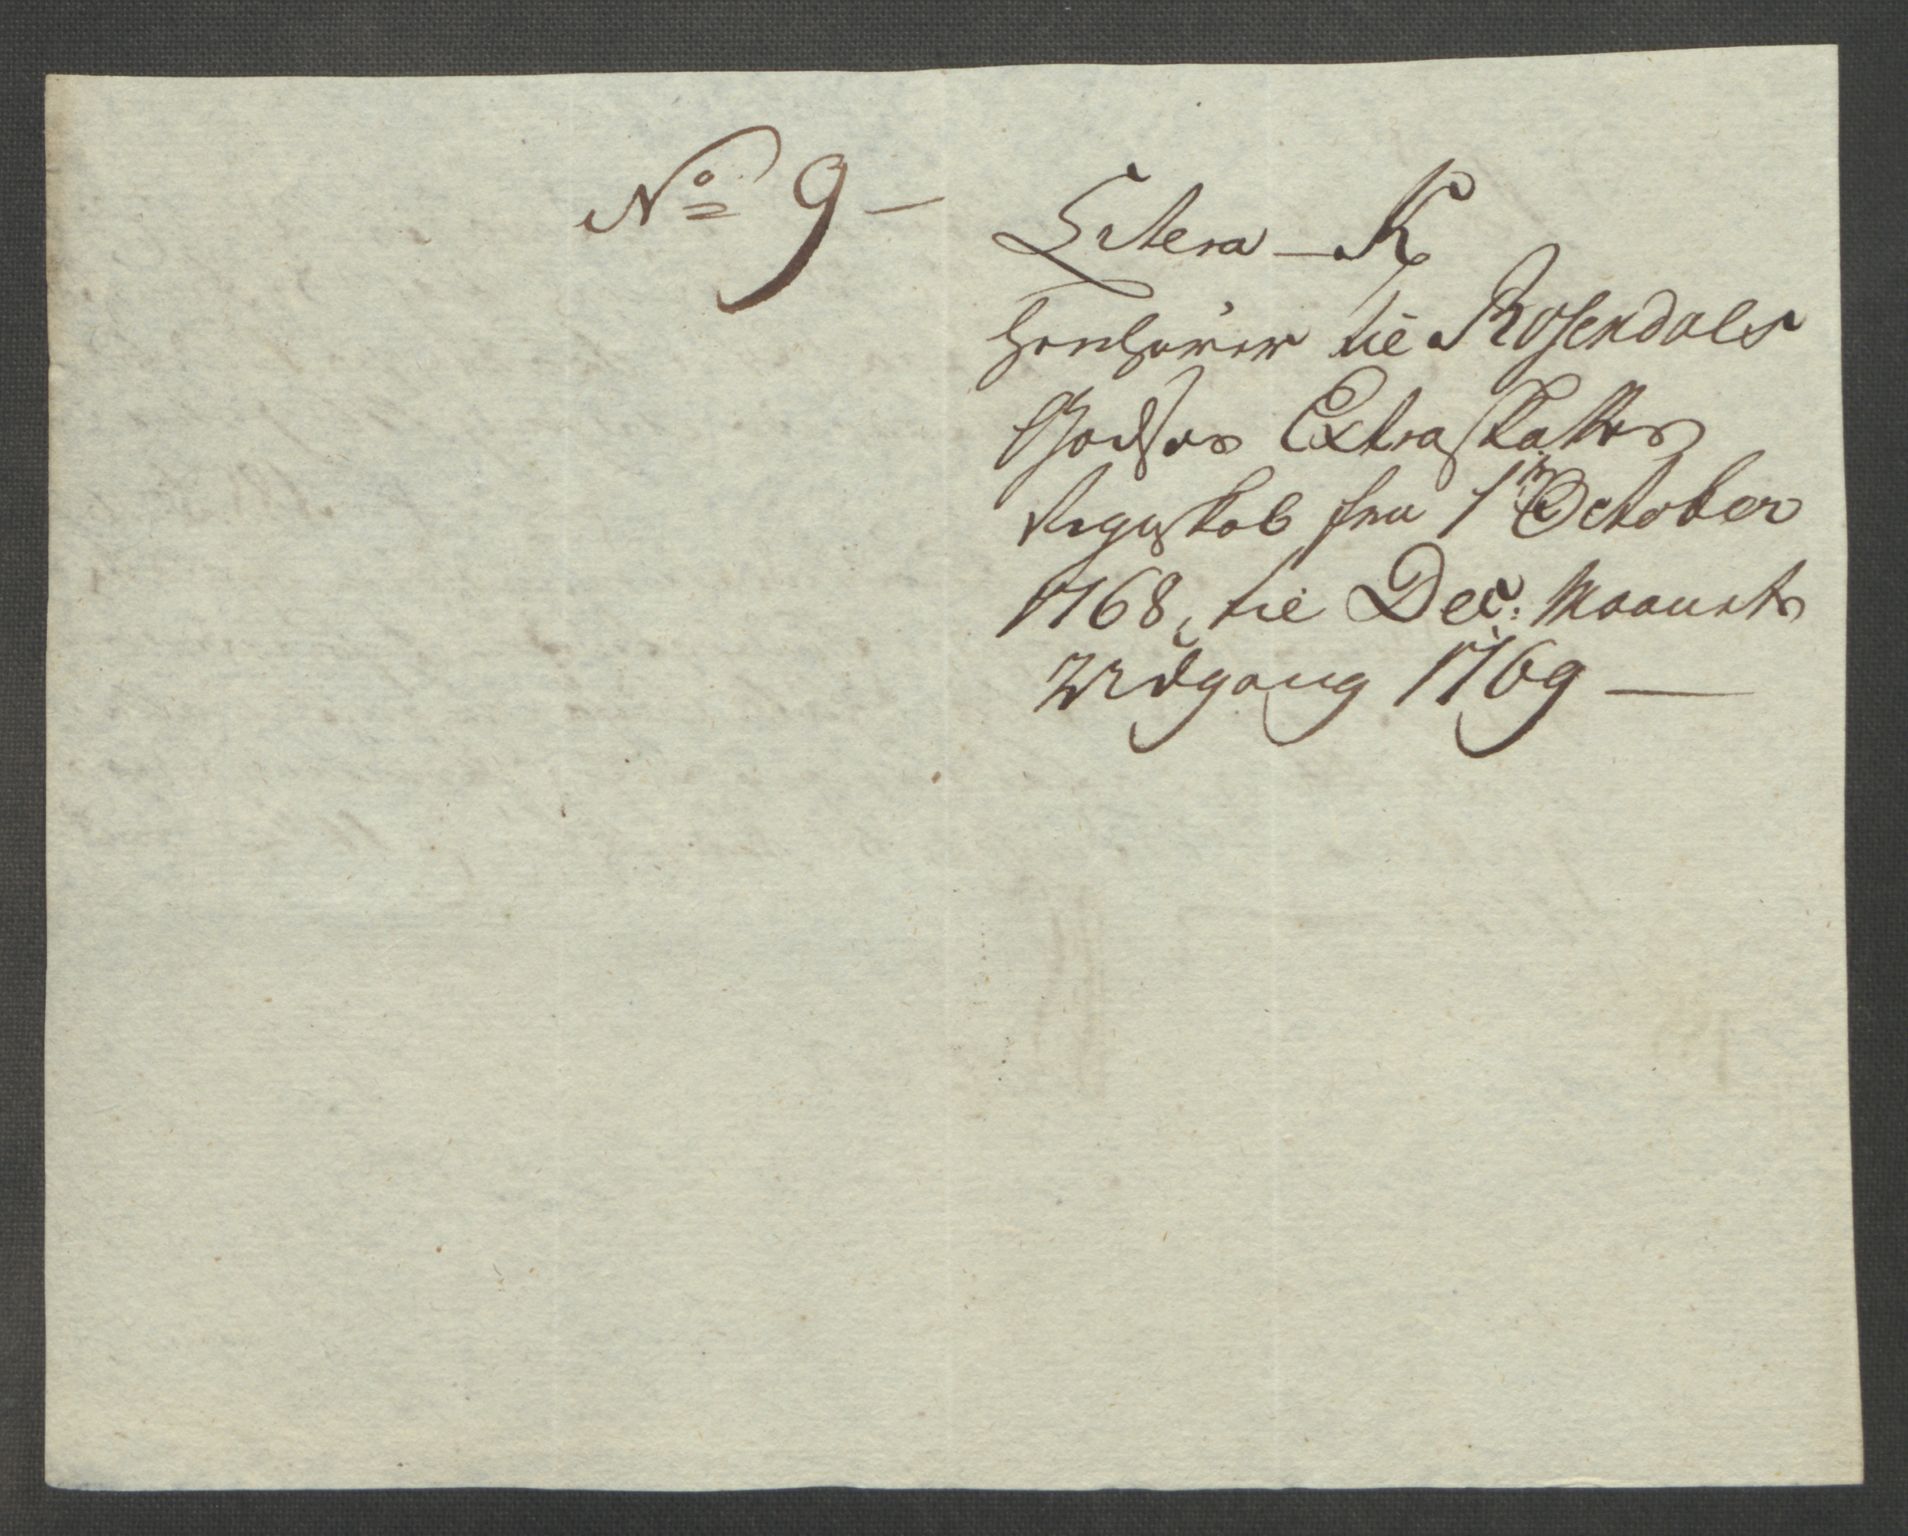 No 9 –
Litera – K
henhörer til Rosendals
Godses Extraskatters
Regnskab fra 1n October
1768, til Dec: Maaneds
Udgang 1769 –